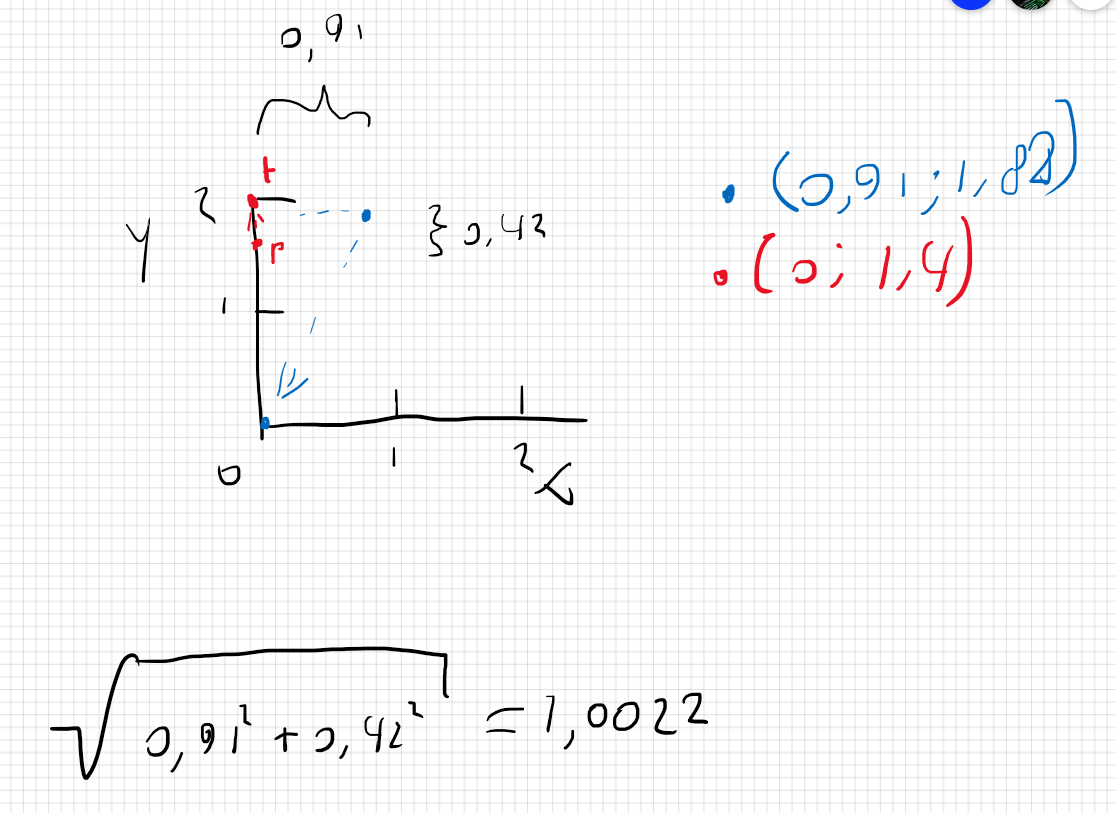 0,91
t
2
y
r
} 0,42
1
0
1
2
x
• (0,91; 1,82)
• (0; 1,4)
√0,91² + 0,42² = 1,0022